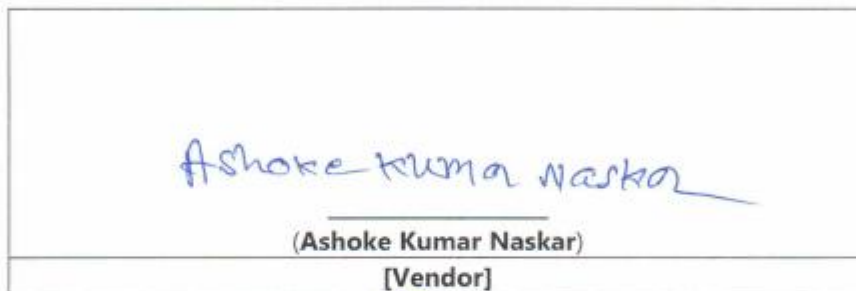 Ashoke Kumar Naskar
(Ashoke Kumar Naskar)
[Vendor]